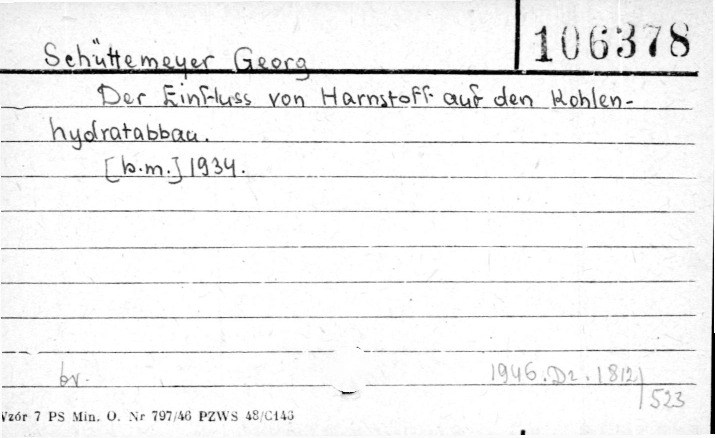 106378
Schüttemeyer Georg
Der Einfluss von Harnstoff auf den Kohlen-
hydratabbau.
[b.m.] 1934.
br.
1946.Dz.1812/
523
Wzór 7 PS Min. O. Nr 797/46 PZWS 48/C143